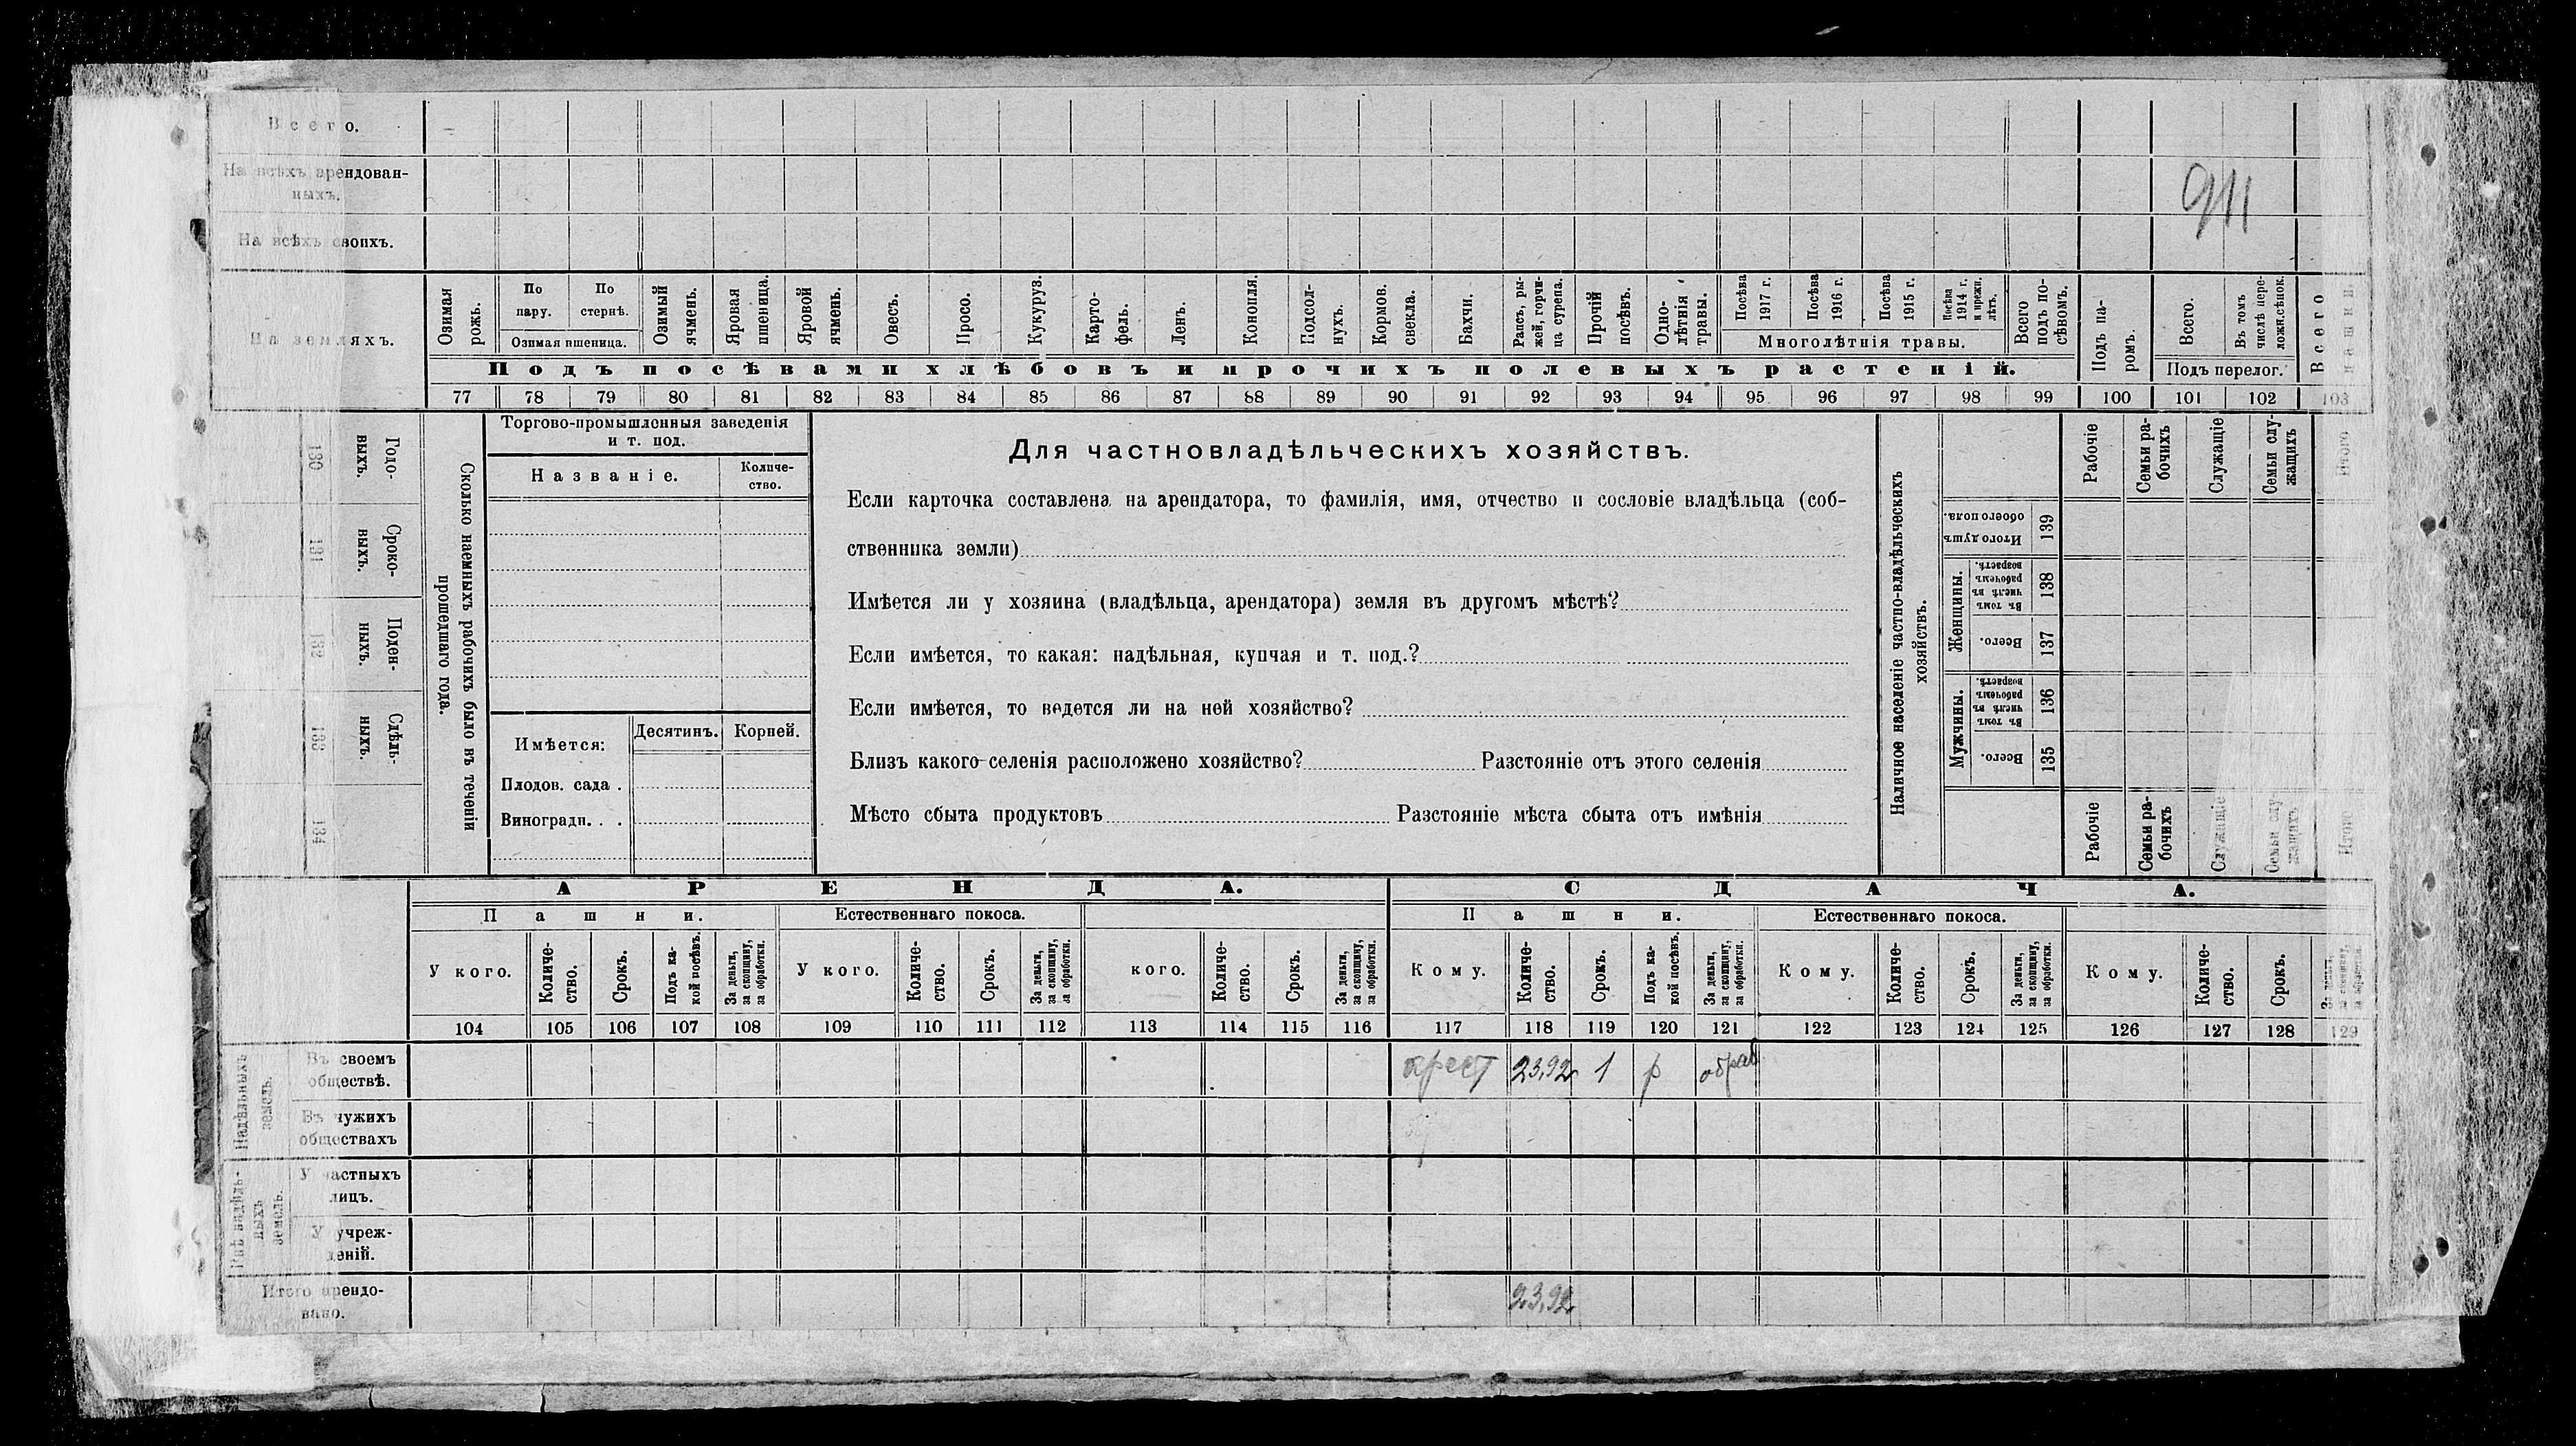 Всего.
На всѣхъ арендован-
ныхъ.
911
На всѣхъ своихъ.
На земляхъ.
Озимая рожь.
По пару.
По стернѣ.
Озимая пшеница.
Озимый ячмень.
Яровая пшеница.
Яровой ячмень.
Овесъ.
Просо.
Кукуруз.
Карто-
фель.
Ленъ.
Конопля.
Подсол-
нухъ.
Кормов. свекла.
Бахчи.
Рапсъ, ры-
жей, горчи-
ца сурепа.
Прочій посѣвъ.
Одно-
лѣтнія травы.
Посѣва 1917 г.
Посѣва 1916 г.
Посѣва 1915 г.
Посѣва 1914 г. и прежн. лѣтъ.
Многолѣтнія травы.
Всего подъ по-
сѣвомъ.
Подъ па-
ромъ.
Всего.
Въ томъ числѣ пере-
ложн. сѣнок.
Подъ перелог.
Всего пашни
Подъ посѣвами хлѣбовъ и прочихъ полевыхъ растеній.
77 78 79 80 81 82 83 84 85 86 87 88 89 90 91 92 93 94 95 96 97 98 99 100 101 102 103
Годо-
выхъ.
130
Сроко-
выхъ.
131
Поден-
ныхъ.
132
Сдѣль-
ныхъ.
133
134
Сколько наемныхъ рабочихъ было въ теченіи
прошедшаго года.
Торгово-промышленныя заведенія
и т. под.
Названіе.
Количе-
ство.
Имѣется:
Десятинъ.
Корней.
Плодов. сада .
Виноградн. . .
Для частновладѣльческихъ хозяйствъ.
Если карточка составлена на арендатора, то фамилія, имя, отчество и сословіе владѣльца (соб-
ственника земли)
Имѣется ли у хозяина (владѣльца, арендатора) земля въ другомъ мѣстѣ?
Если имѣется, то какая: надѣльная, купчая и т. под.?
Если имѣется, то ведется ли на ней хозяйство?
Близъ какого-селенія расположено хозяйство? Разстояніе отъ этого селенія
Мѣсто сбыта продуктовъ Разстояніе мѣста сбыта отъ имѣнія
Наличное населеніе частно-владѣльческихъ
хозяйствъ.
Рабочіе
Семьи ра-
бочихъ
Служащіе
Семьи слу-
жащихъ
Итого
Итого душъ обоего пола.
139
Женщины.
Въ томъ числѣ въ рабочемъ возрастѣ.
138
Всего.
137
Мужчины.
Въ томъ числѣ въ рабочемъ возрастѣ.
136
Всего.
135
Рабочіе
Семьи ра-
бочихъ
Служащіе
Семьи слу-
жащихъ
Итого
АРЕНДА.
СДАЧА.
Пашни.
Естественнаго покоса.
Пашни.
Естественнаго покоса.
У кого.
Количе-
ство.
Срокъ.
Подъ ка-
кой посѣвъ.
За деньги, за скопщину, за обработки.
У кого.
Количе-
ство.
Срокъ.
За деньги, за скопщину, за обработки.
кого.
Количе-
ство.
Срокъ.
За деньги, за скопщину, за обработки.
Кому.
Количе-
ство.
Срокъ.
Подъ ка-
кой посѣвъ.
За деньги, за скопщину, за обработки.
Кому.
Количе-
ство.
Срокъ.
За деньги, за скопщину, за обработки.
Кому.
Количе-
ство.
Срокъ.
За деньги, за скопщину, за обработки.
104 105 106 107 108 109 110 111 112 113 114 115 116 117 118 119 120 121 122 123 124 125 126 127 128 129
Надѣльныхъ земель.
Въ своемъ
обществѣ.
крест 23,92 1 р обраб
Въ чужихъ
обществахъ
Внѣ надѣль-
ныхъ земель.
У частныхъ
лицъ.
У учреж-
деній.
Итого арендо-
вано.
23,92